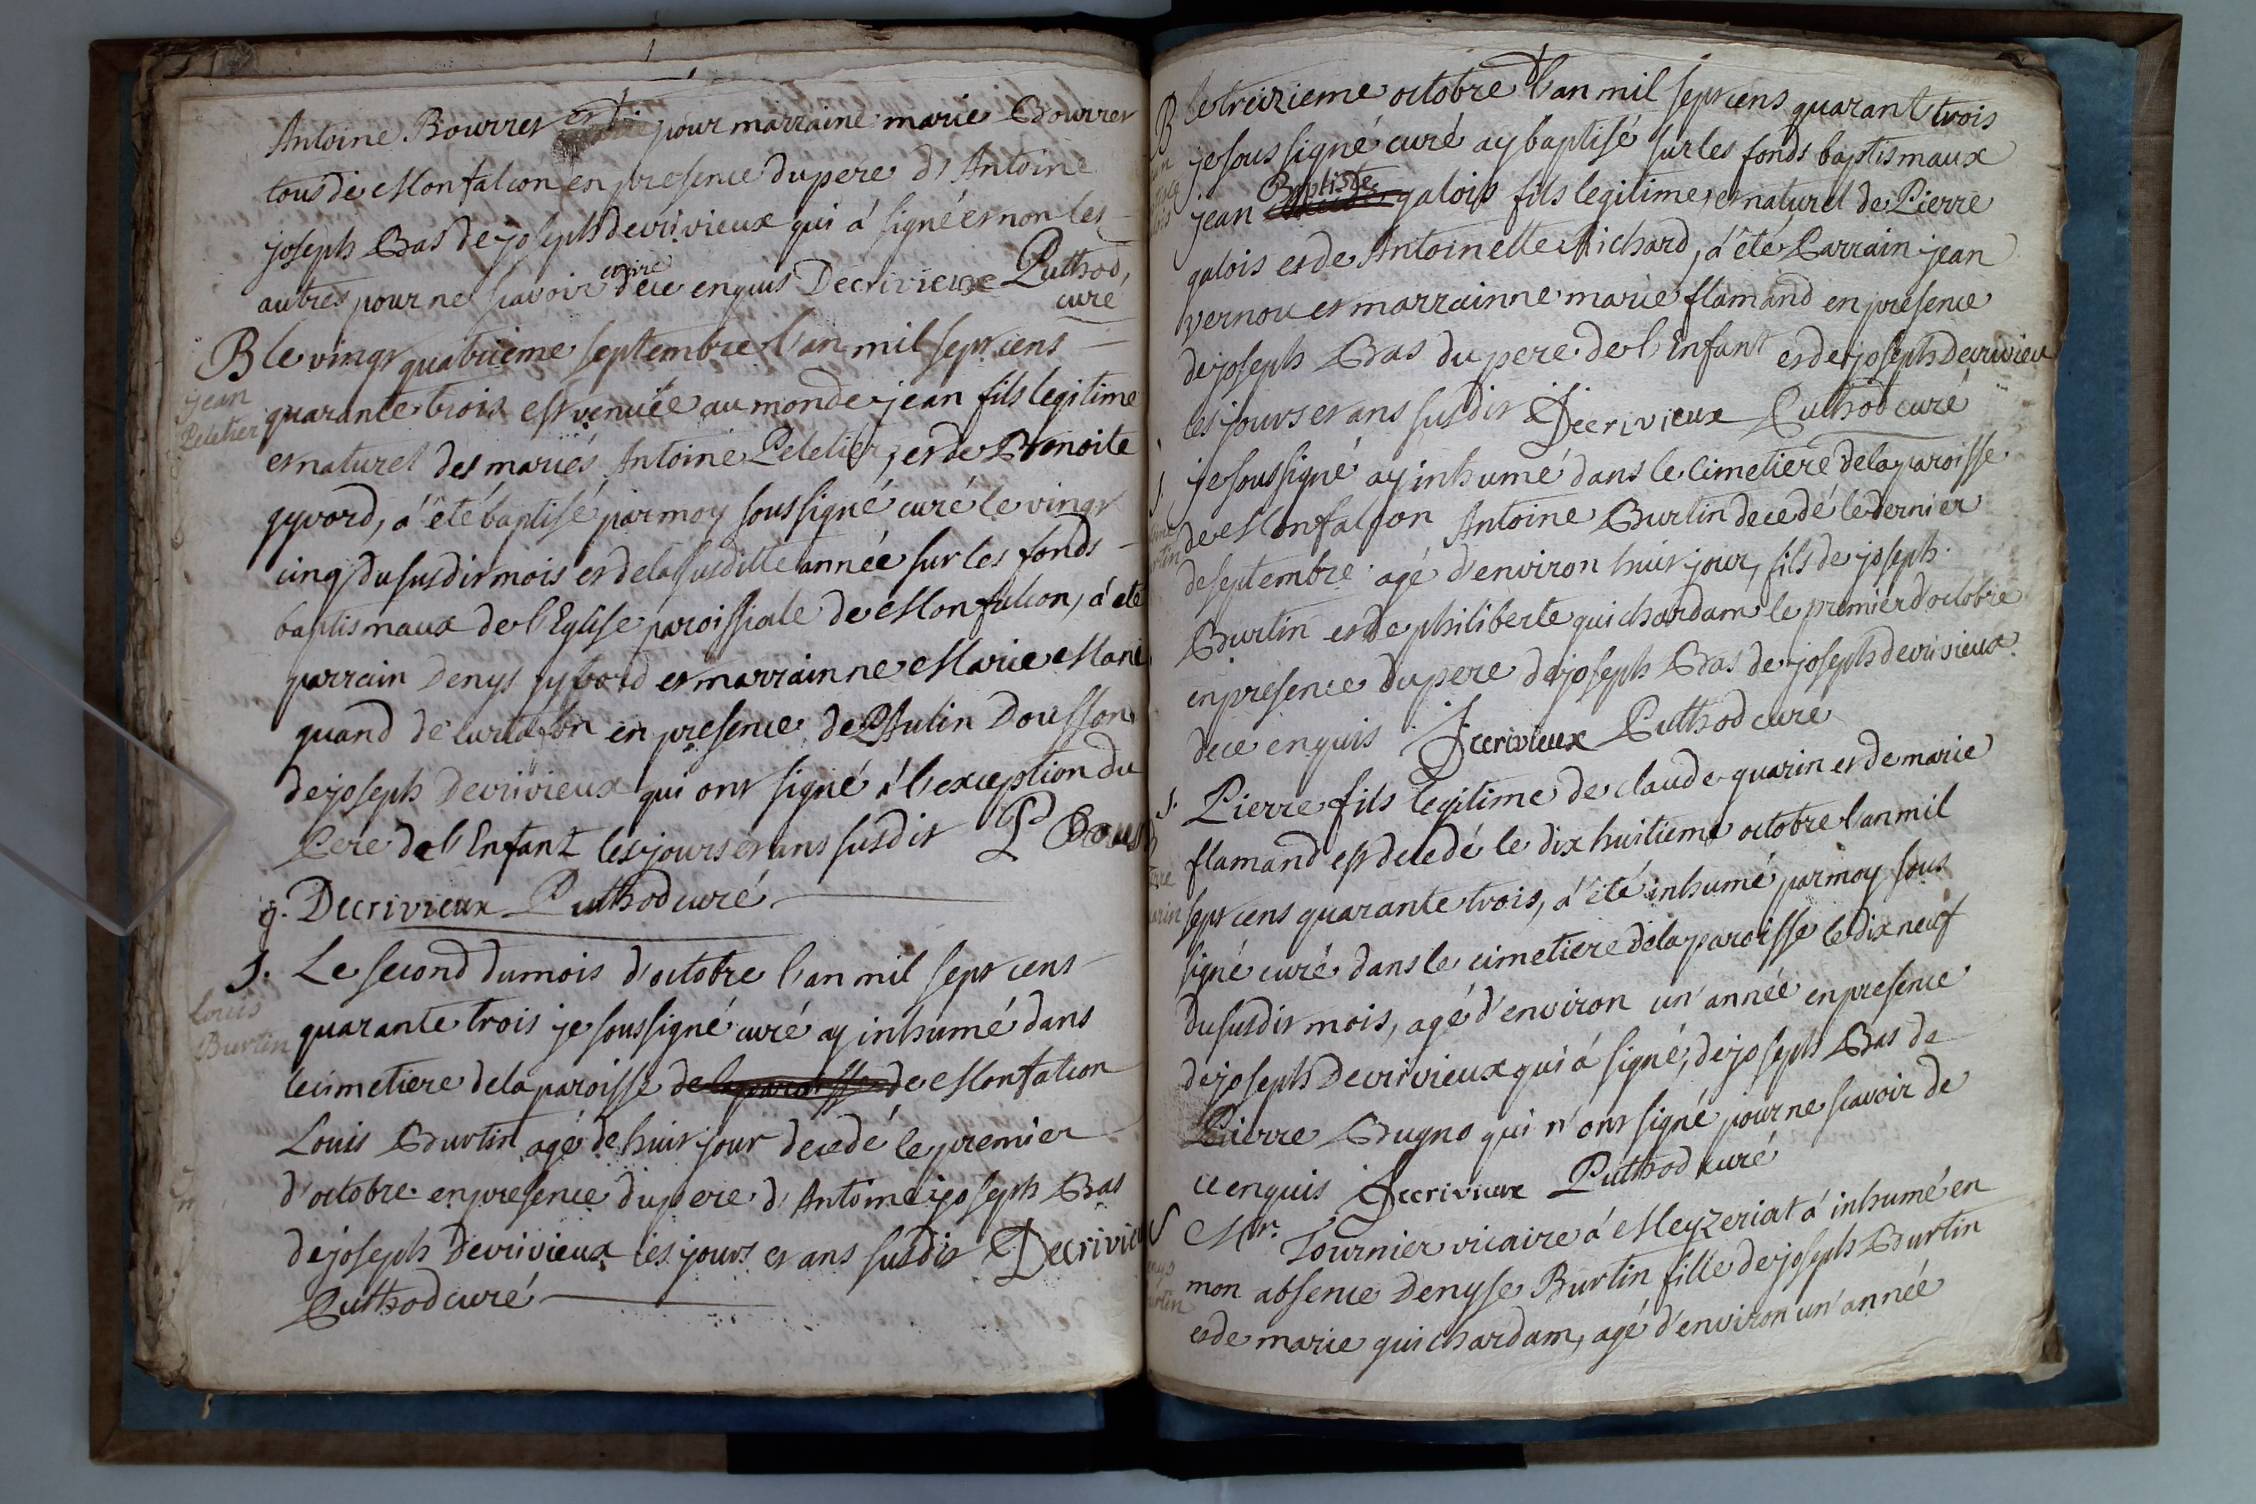 Antoine Bourret et pour marraine marie Bourret
tous de Monfalcon en presence du pere d'Antoine
joseph Bas de joseph decrivieux qui à signé et non les
autres pour ne scavoir ecrire de ce enquis Decrivieux Puthod,
curé
B le vingt quatrieme septembre l'an mil sept cens
jean
Peletier
quarante trois est venuée au monde jean fils legitime
et naturel des mariés Antoine Peletier, et de Benoite
gyvord, à été baptisé par moy soussigné curé le vingt
cinq du susdit mois et de la susditte année sur les fonds
baptismaux de l'Eglise paroissiale de Monfalcon, à eté
parrain Denys gyvord et marrainne Marie Mari
quand de curtafon en presence de Paulin Dousson
de joseph Decrivieux qui ont signé à l'exception du
Pere de l'Enfant les jours et ans susdit P Dous
g. Decrivieux Puthod curé
S. Le second du mois d'octobre l'an mil sept cens
Louis
Burtin
quarante trois je soussigné curé ay inhumé dans
le cimetiere de la paroisse de la paroisse de Monfalcon
Louis Burtin agé de huit jour decedé le premier
d'octobre en presence du pere d'Antoine joseph Bas
de joseph Decrivieux les jours et ans susdit Decrivieu
Puthod curé
B le treizieme octobre l'an mil sept cens quarant trois
je soussigné curé ay baptisé sur les fonds baptismaux
jean Baptiste galois fils legitime et naturel de Pierre
galois et de Antoinette Richard, à été Parrain jean
vernou et marrainne marie flamand en presence
de joseph Bas du pere de l'Enfant et de joseph Decrivieu
les jours et ans susdit Decrivieux Puthod curé
S. je soussigné ay inhumé dans le cimetiere de la paroisse
de Monfalcon Antoine Burtin decedé le dernier
de septembre agé d'environ huit jour, fils de joseph
Burtin et de philiberte quichardam le premier d'octobre
en presence du pere de joseph Bas de joseph decrivieux
de ce enquis Decrivieux Puthod curé
S. Pierre fils legitime de claude quarin et de marie
flamand est decedé le dix huitieme octobre l'an mil
sept cens quarante trois, à été inhumé par moy sous
signé curé dans le cimetiere de la paroisse le dix neuf
du susdit mois, agé d'environ un'année en presence
de joseph Decrivieux qui à signé, de joseph Bas de
Pierre Bugno qui n'ont signé pour ne scavoir de
ce enquis Decrivieux Puthod curé
S Mr. Tournier vicaire à Meyzeriat à inhumé en
mon absence Denyse Burtin fille de joseph Burtin
et de marie quichardam, agé d'environ un'année